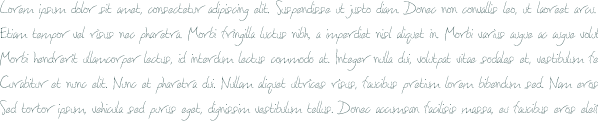 Lorem ipsum dolor sit amet, consectetur adipiscing elit. Suspendisse ut justo diam. Donec non convallis leo, ut laoreet arcu.
Etiam tempor vel risus nec pharetra. Morbi fringilla luctus nibh, a imperdiet nisl aliquet in. Morbi varius augue ac augue volut
Morbi hendrerit ullamcorper lectus, id interdum lectus commodo at. Integer nulla dui, volutpat vitae sodales et, vestibulum te
Curabitur et nunc elit. Nunc et pharetra dui. Nullam aliquet ultrices risus, faucibus pretium lorem bibendum sed. Nam eros
Sed tortor ipsum, vehicula sed purus eget, dignissim vestibulum tellus. Donec accumsan facilisis massa, eu faucibus eros eleif